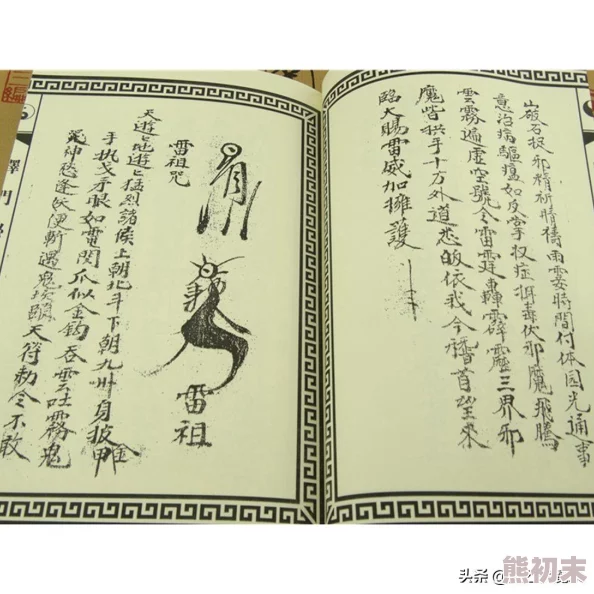 山破石捉邪精祈晴禱雨霎時間付体圓光通事
意治病驅瘟如反掌収症毒伏邪魔飛騰
雲霧遍虛空號令雷霆轟霹靂三界邪
魔皆拱手十方外道悉皈依我今稽首望來
臨大賜雷威加擁護
雷祖
雷祖咒
天遊〻地遊〻猛烈諸侯上朝北斗下朝九州身披甲
手执戈矛眼如電閃爪似金鈎吞雲吐霧鬼
神愁逢妖便斬遇鬼天符勅令不敢
釋門
头条 @
熊初末